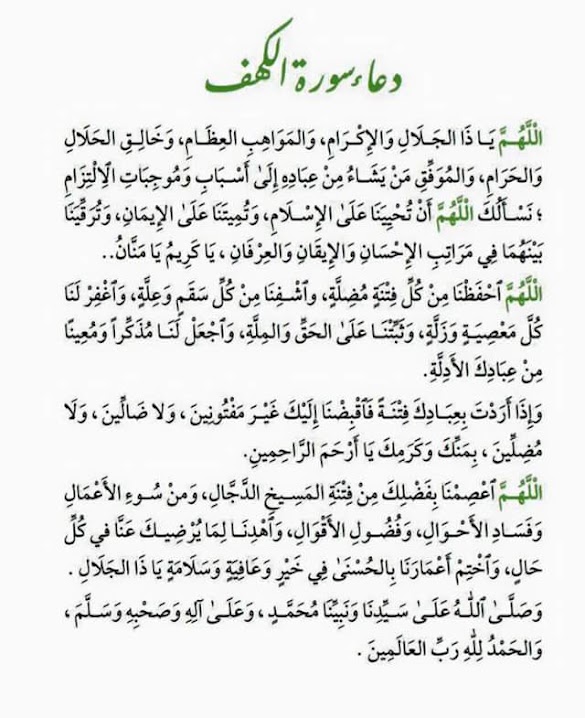 دعاء سورة الكهف
اللَّهُمَّ يَا ذَا الجَلَالِ وَالإِكْرَامِ، وَالمَوَاهِبِ العِظَامِ، وَخَالِقِ الحَلَالِ
وَالحَرَامِ، وَالمُوَفِّقِ مَنْ يَشَاءُ مِنْ عِبَادِهِ إِلَىٰ أَسْبَابِ وَمُوجِبَاتِ الِالْتِزَامِ
؛ نَسْأَلُكَ اللَّهُمَّ أَنْ تُحْيِيَنَا عَلَىٰ الإِسْلَامِ، وَتُمِيتَنَا عَلَىٰ الإِيمَانِ، وَتُرَقِّيَنَا
بَيْنَهُمَا فِي مَرَاتِبِ الإِحْسَانِ وَالإِيقَانِ وَالعِرْفَانِ ، يَا كَرِيمُ يَا مَنَّانُ..
اللَّهُمَّ ٱحْفَظْنَا مِنْ كُلِّ فِتْنَةٍ مُضِلَّةٍ، وٱشْفِنَا مِنْ كُلِّ سَقَمٍ وَعِلَّةٍ، وَٱغْفِرْ لَنَا
كُلَّ مَعْصِيَةٍ وَزَلَّةٍ، وَثَبِّتْنَا عَلَىٰ الحَقِّ وَالمِلَّةِ، وَٱجْعَلْ لَنَا مُذَكِّراً وَمُعِينًا
مِنْ عِبَادِكَ الأَدِلَّةِ.
وَإِذَا أَرَدْتَ بِعِبَادِكَ فِتْنَةً فَٱقْبِضْنَا إِلَيْكَ غَيْرَ مَفْتُونِينَ ، وَلا ضَالِّينَ ، وَلَا
مُضِلِّينَ ، بِمَنِّكَ وَكَرَمِكَ يَا أَرْحَمَ الرَّاحِمِينِ.
اللَّهُمَّ ٱعْصِمْنَا بِفَضْلِكَ مِنْ فِتْنَةِ المَسِيخِ الدَّجَّالِ، وَمِنْ سُوءِ الأَعْمَالِ
وَفَسَادِ الأَحْوَالِ، وَفُضُولِ الأَقْوَالِ، وَٱهْدِنَا لِمَا يُرْضِيكَ عَنَّا في كُلِّ
حَالٍ، وَٱخْتِمْ أَعْمَارَنَا بِالحُسْنَىٰ فِي خَيْرٍ وَعَافِيَةٍ وَسَلَامَةٍ يَا ذَا الجَلَالِ .
وَصَلَّىٰ ٱللَّهُ عَلَىٰ سَيِّدِنَا وَنَبِيِّنَا مُحَمَّدٍ ، وَعَلَىٰ آلِهِ وَصَحْبِهِ وَسَلَّمَ ،
وَالحَمْدُ لِلَّهِ رَبِّ العَالَمِينَ .